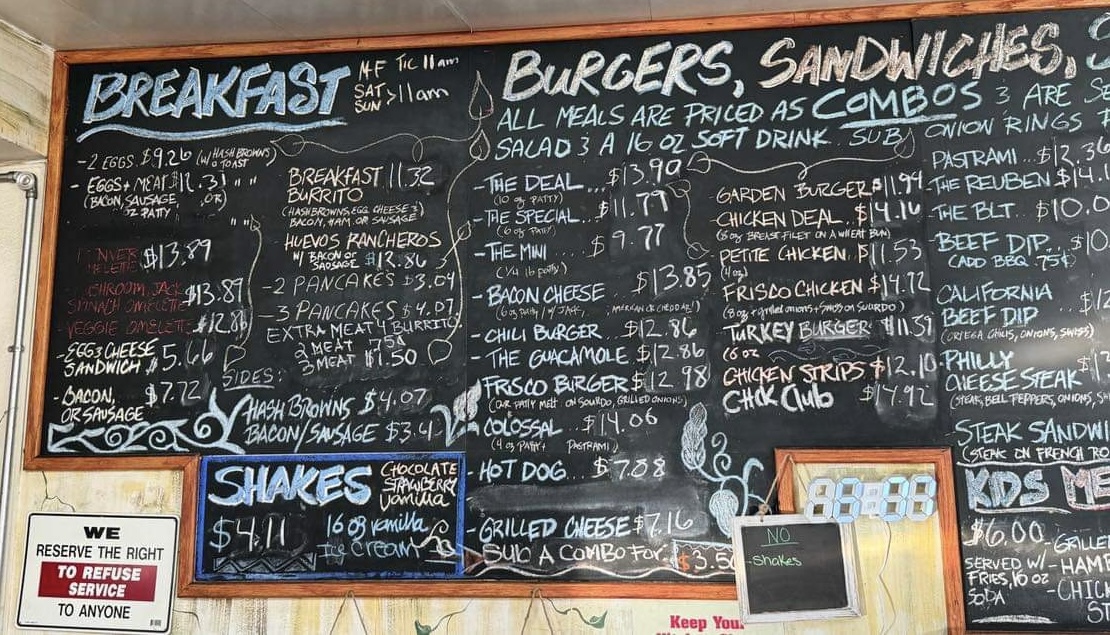 BREAKFAST
M-F TIL 11am
SAT
SUN > 11am
-2 EGGS $9.26 (W/ HASH BROWNS)
& TOAST
- EGGS + MEAT $11.31 " "
(BACON, SAUSAGE, OR)
PATTY
" "
$13.89
$13.89
SPINACH OMELETTE
VEGGIE OMELETTE $12.86
-EGG & CHEESE
SANDWICH $5.66
-BACON, $7.72
OR SAUSAGE
BREAKFAST 11.32
BURRITO
(HASHBROWNS, EGG, CHEESE &
BACON, HAM, OR SAUSAGE)
-HUEVOS RANCHEROS
W/ BACON OR
SAUSAGE $12.86
-2 PANCAKES $3.09
-3 PANCAKES $4.07
EXTRA MEAT 4 BURRITO
2 MEAT 75¢
3 MEAT $1.50
SIDES:
HASH BROWNS $4.07
BACON/SAUSAGE
SHAKES
CHOCOLATE
STRAWBERRY
vanilla
$4.11
16 oz vanilla
Ice CREAM
BURGERS, SANDWICHES,
ALL MEALS ARE PRICED AS COMBOS & ARE
SALAD & A 16 OZ SOFT DRINK. SUB ONION RINGS
-THE DEAL... $13.90
(10 oz. PATTY)
-THE SPECIAL... $11.79
(6 oz PATTY)
-THE MINI $9.77
(1/4 lb patty)
-BACON CHEESE $13.85
(6 oz patty w/ JACK, AMERICAN OR CHEDDAR)
-CHILI BURGER $12.86
-THE GUACAMOLE $12.86
-FRISCO BURGER $12.98
(OUR PATTY MELT ON SOURDO, GRILLED ONIONS)
-COLOSSAL $14.06
(4 oz PATTY + PASTRAMI)
-HOT DOG... $7.88
-GRILLED CHEESE $7.16
A COMBO FOR
GARDEN BURGER $11.94
-CHICKEN DEAL. $14.16
(8 oz BREAST FILET ON A WHEAT BUN)
PETITE CHICKEN $11.53
(4 oz)
FRISCO CHICKEN $14.72
TURKEY BURGER $11.39
(6 oz
CHICKEN STRIPS $12.10
CHCK Club $14.92
PASTRAMI...
-THE REUBEN
-THE BLT...
-BEEF DIP...
(ADD BBQ .75¢)
CALIFORNIA
BEEF DIP
(ORTEGA CHILIS, ONIONS, SWISS)
-PHILLY
CHEESE STEAK
(STEAK, BELL PEPPERS, ONIONS,
-STEAK
(STEAK ON FRENCH
KIDS
$6.00
SERVED W/
FRIES, 16 oz
SODA
NO
-Shakes
WE
RESERVE THE RIGHT
TO REFUSE
SERVICE
TO ANYONE
Keep Your